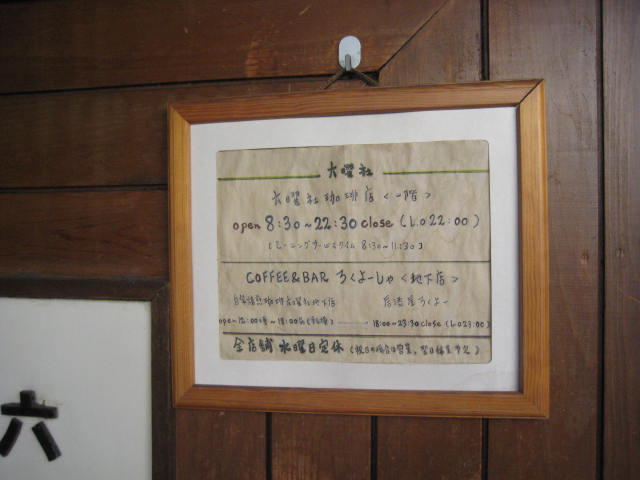 六曜社
六曜社珈琲店<一階>
open 8:30~22:30 close (L.o 22:00)
[モーニングサービスタイム 8:30~11:30]
COFFEE&BAR ろくよーしゃ<地下店>
自家焙煎珈琲六曜社地下店 居酒屋ろくよー
open~12:00 ~18:00 18:00~23:30 close (L.o 23:00)
全店舗 水曜日定休 (祝日の場合は営業、翌日休業予定)
六